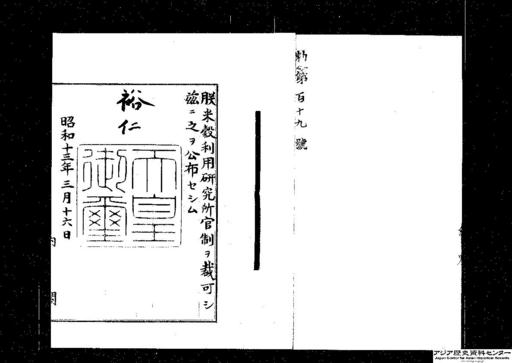 勅令第百十九號
朕米穀利用研究所官制ヲ裁可シ
茲ニ之ヲ公布セシム
裕仁
天皇御璽
昭和十三年三月十六日
内閣
アジア歴史資料センター
Japan Center for Asian Historical Records